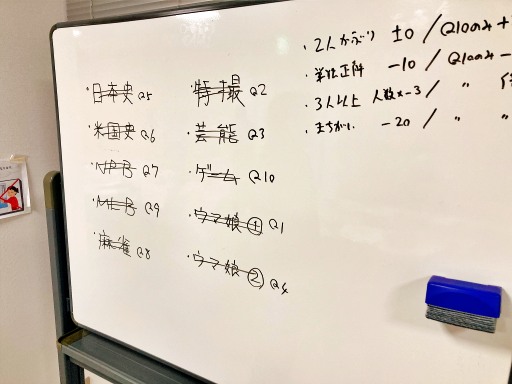 ・日本史 Q5
・米国史 Q6
・NPB Q7
・MLB Q9
・麻雀 Q8
・特撮 Q2
・芸能 Q3
・ゲーム Q10
・ウマ娘① Q1
・ウマ娘② Q4
・2人かぶり ±0 / Q10のみ +
・単独正解 -10 / Q10のみ -
・3人以上 人数×-3 / 〃
・まちがい -20 / 〃 〃